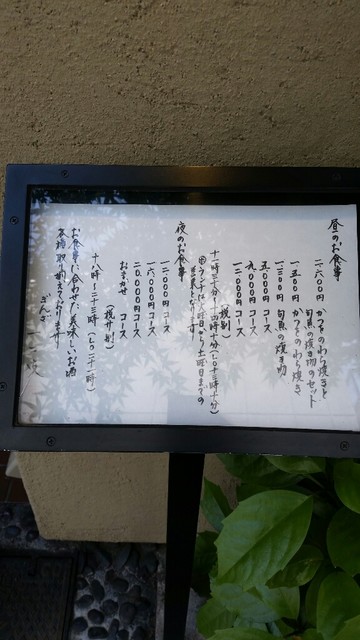 昼のお食事
二、六〇〇円 かつおのわら焼きと
旬魚の焼き物のセット
一、五〇〇円 かつおのわら焼き
一、三〇〇円 旬魚の焼き物
五、〇〇〇円 コース
九、〇〇〇円 コース
一二、〇〇〇円 コース
(税別)
十一時三十分〜十四時十分(L.O十三時十分)
※ランチは、火曜日から土曜日までの
営業となります
夜のお食事
一二、〇〇〇円 コース
一六、〇〇〇円 コース
二〇、〇〇〇円 コース
おまかせ コース
(税サ別)
十八時〜二十三時(L.O二十一時)
お食事に合わせた、美味しいお酒
各種取り揃えております
ぎんざ 一